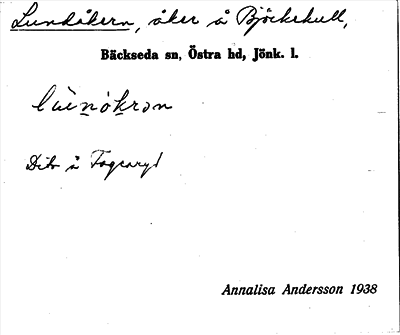 Lundåkern, åker å Björkekull,
Bäckseda sn, Östra hd, Jönk. l.
Dito å Fagraryd
Annalisa Andersson 1938